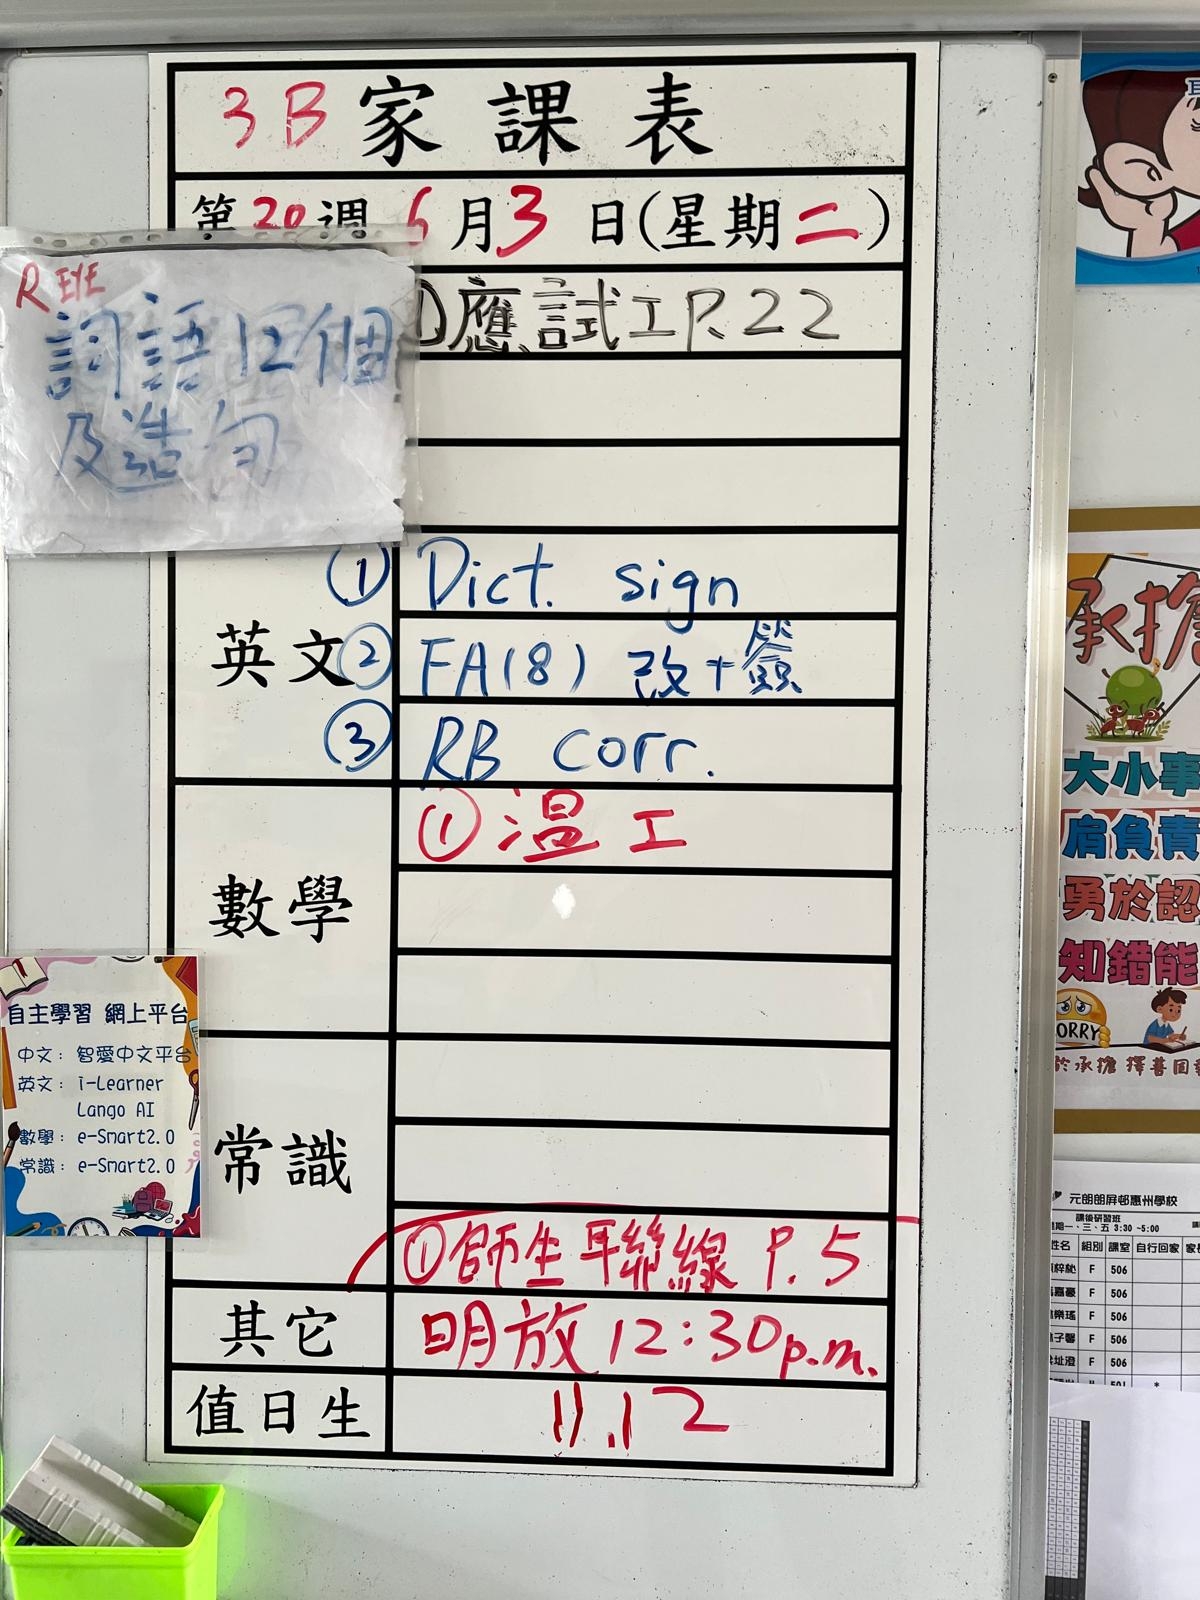 3B 家課表
第20週 6月3日(星期二)
R EYE
詞語12個
及造句
①應試工 P.22
英文
① Dict. sign
② FA(8) 改+簽
③ RB corr.
數學
①溫工
常識
①師生聯線 P.5
其它
明放 12:30p.m.
值日生
11.12
自主學習 網上平台
中文: 智愛中文平台
英文: i-Learner
Lango AI
數學: e-Smart2.0
常識: e-Smart2.0
承擔
大小事
肩負責
勇於認
知錯能
ORRY
於承擔 擇善固
元朗朗屏邨惠州學校
課後研習班
期一、三、五 3:30 ~5:00
姓名 組別 課室 自行回家
F 506
嘉豪 F 506
樂瑤 F 506
子馨 F 506
址澄 F 506
501 *